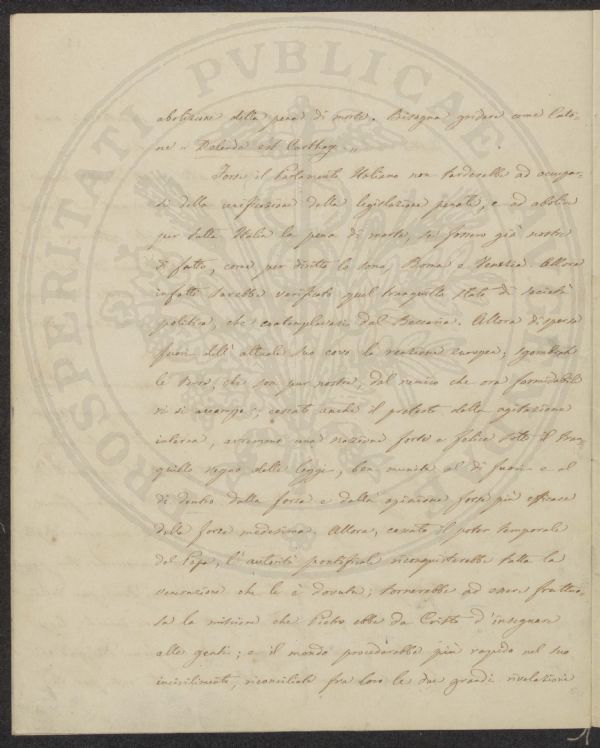 PROSPERITATI PVBLICAE
abolizione della pena di morte. Bisogna gridare come Cato-
ne " Delenda est Carthago "
Forse il Parlamento Italiano non tarderebbe ad occupar-
si della unificazione della legislazione penale, e ad abolire
per tutta Italia la pena di morte, se fossero già nostre
di fatto, come per diritto lo sono, Roma e Venezia. Allora
infatti sarebbe verificato quel tranquillo stato di società
politica, che contemplavasi dal Beccaria. Allora dispersa
fuori dell' attuale suo covo la reazione europea; sgombrate
le terre, che son pur nostre, dal nemico che ora formidabile
vi si accampa; cessato anche il pretesto della agitazione
interna, avremmo una nazione forte e felice sotto il tran-
quillo regno delle leggi, ben munita al di fuori e al
di dentro dalla forza e dalla opinione forse più efficace
della forza medesima. Allora, cessato il poter temporale
del Papa, l' autorità pontificale riconquisterebbe tutta la
venerazione che le è dovuta; tornerebbe ad esser fruttuo-
sa la missione che Pietro ebbe da Cristo d' insegnare
alle genti; e il mondo procederebbe più rapido nel suo
incivilimento, riconciliate fra loro le due grandi rivelazioni